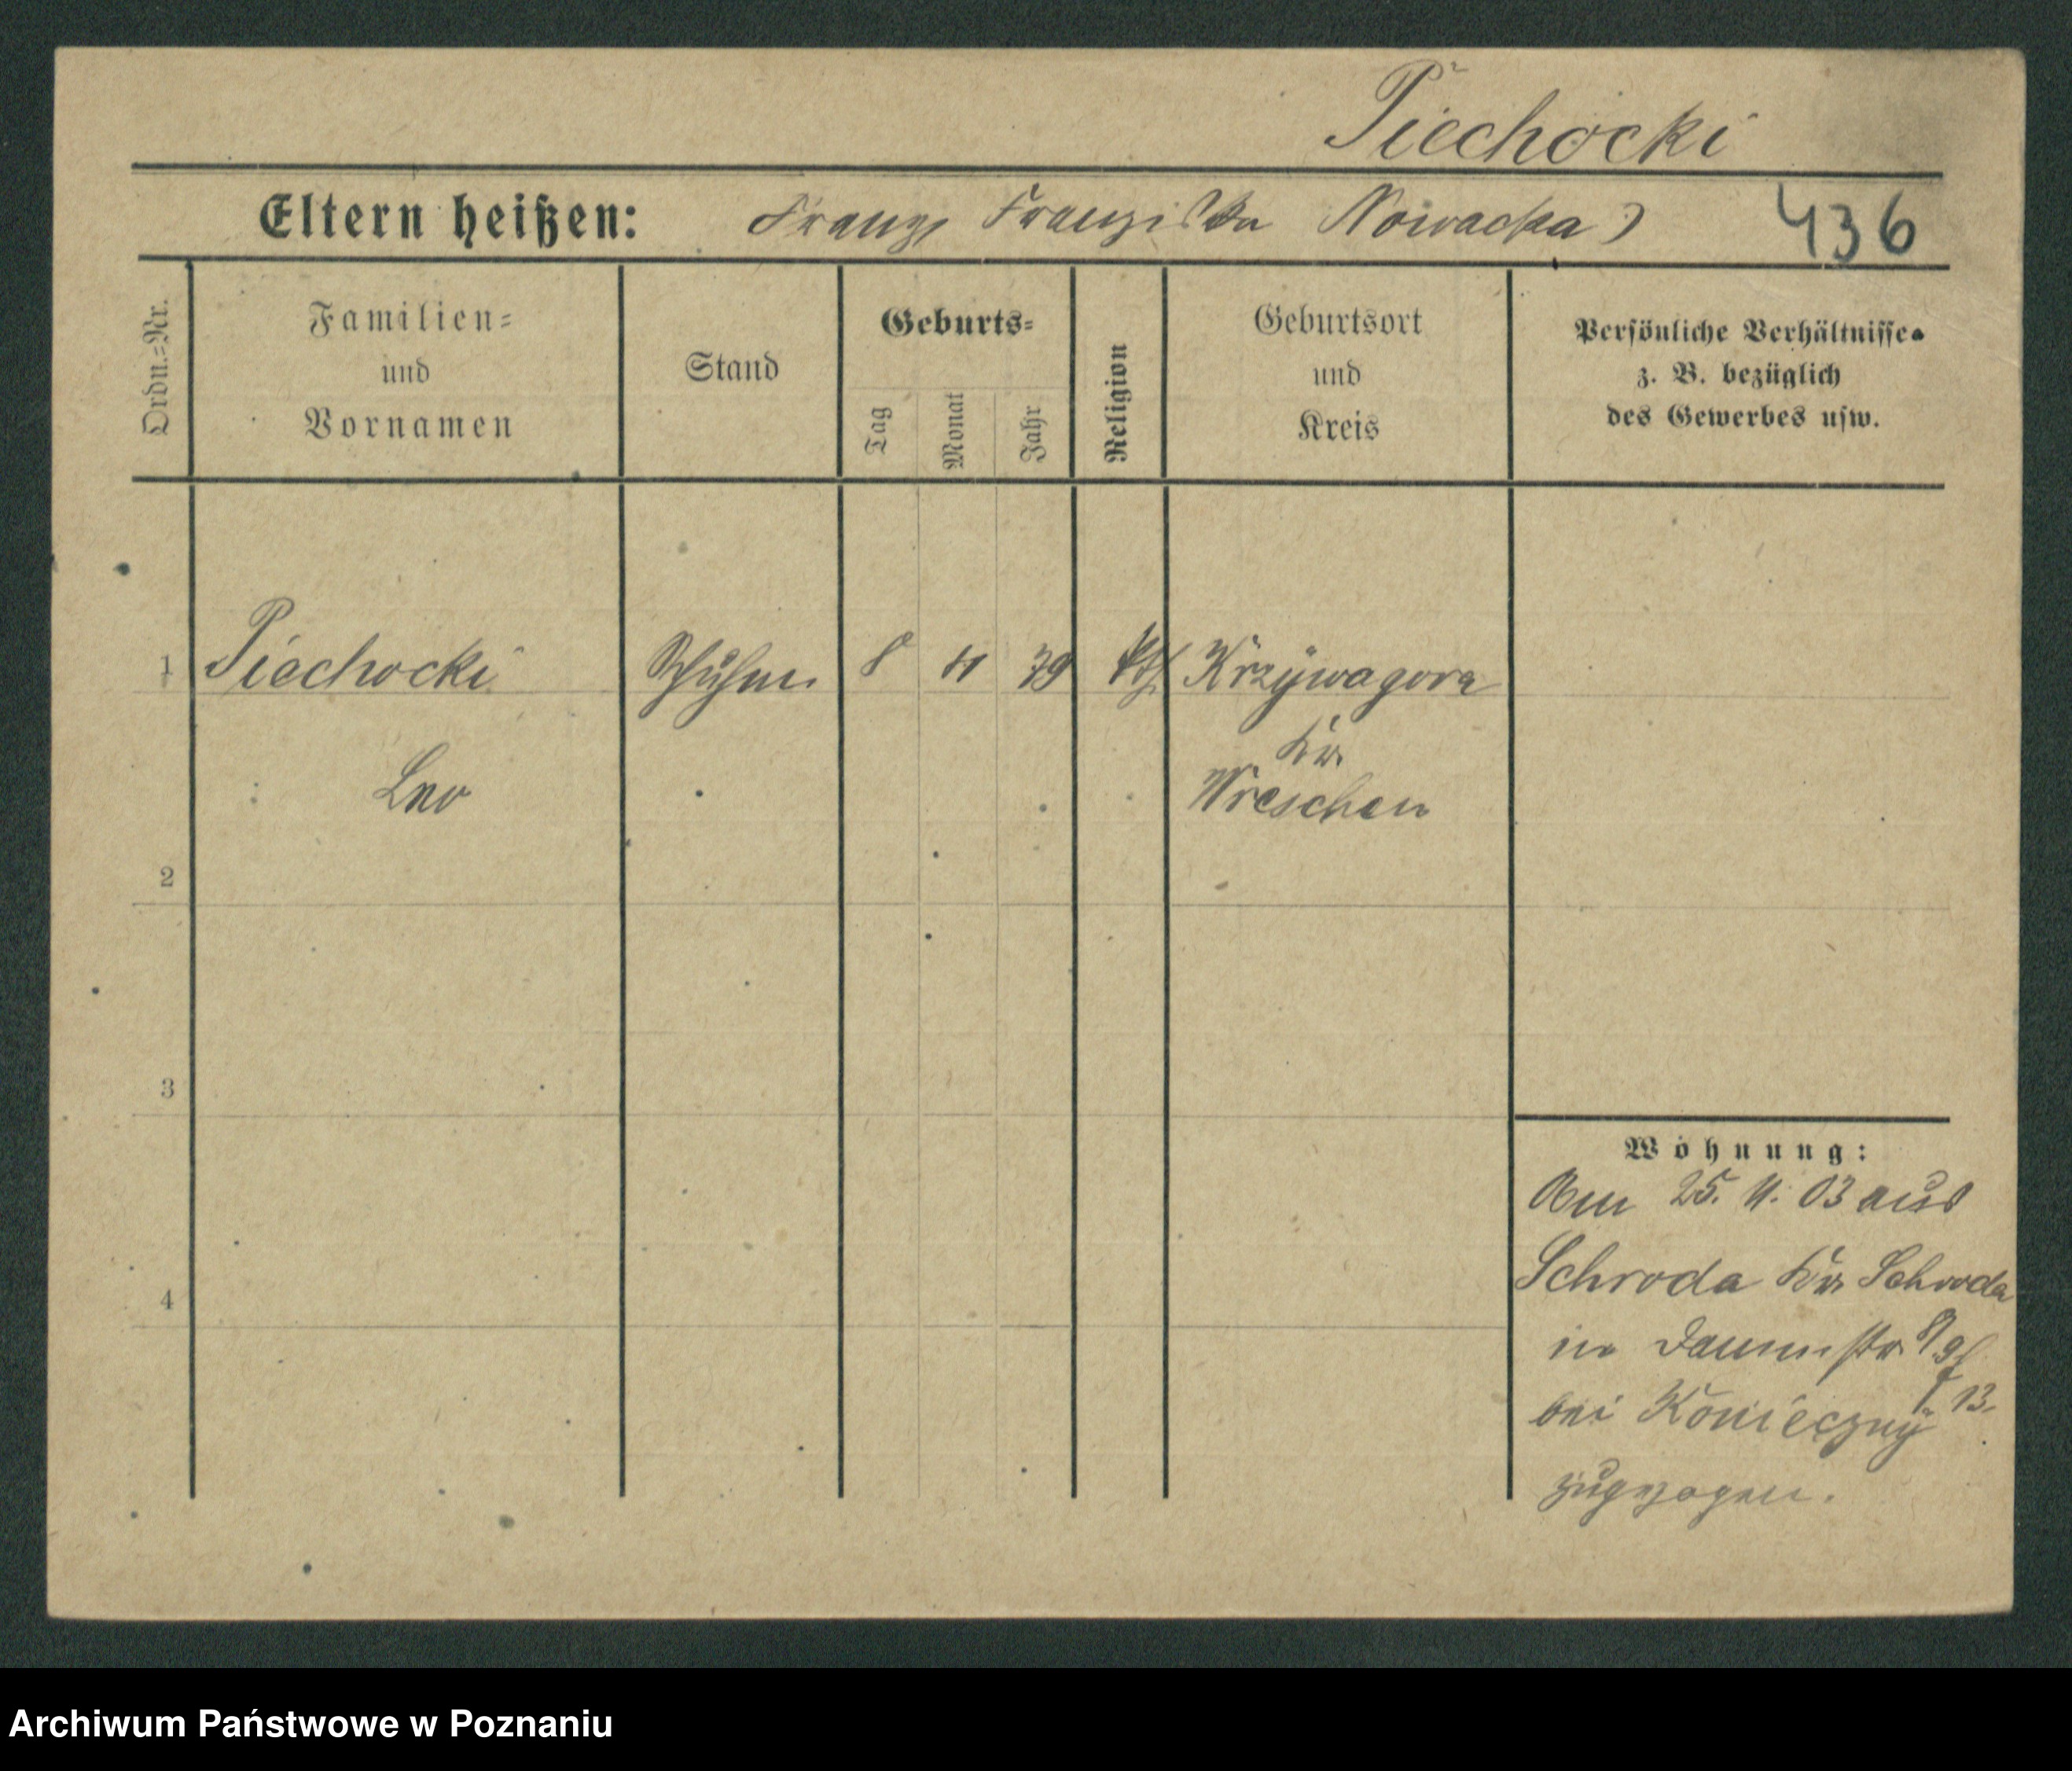 Piechocki
Eltern heißen: Franz, Franziska Nowacka) 436
Ordn.=Nr.
Familien=
und
Vornamen
Stand
Geburts=
Tag
Monat
Jahr
Religion
Geburtsort
und
Kreis
Persönliche Verhältnisse
z. B. bezüglich
des Gewerbes usw.
1 Piechocki 8 11 79 kth Krzywagora
Kr.
Leo Wreschen
2
3
4
Wohnung:
Am 25. 11. 03 aus
Schroda Kr. Schroda
in
bei Konieczny 13.
zugezogen.
Archiwum Państwowe w Poznaniu